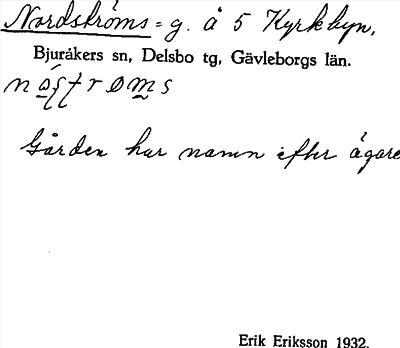 Nordströms = g. å 5 Kyrkbyn,
Bjuråkers sn, Delsbo tg, Gävleborgs län.
Gården har namn efter ägare
Erik Eriksson 1932.